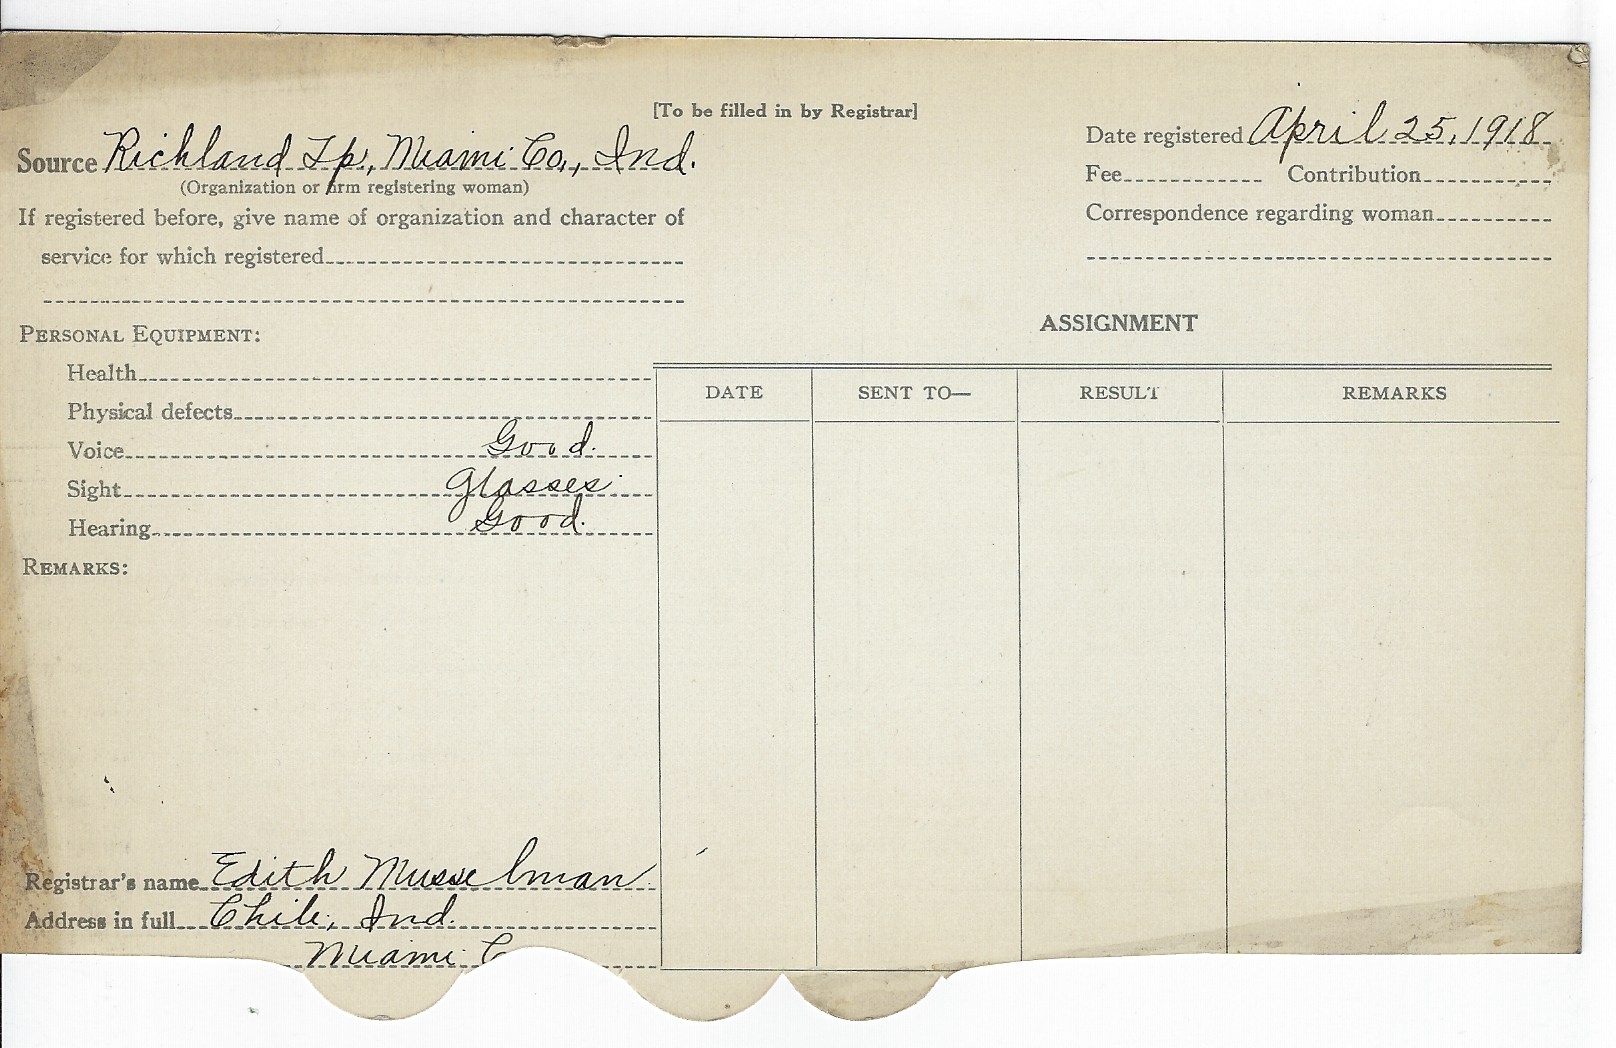 [To be filled in by Registrar]
Source Richland Tp., Miami Co., Ind.
(Organization or firm registering woman)
If registered before, give name of organization and character of
service for which registered
Date registered April 25, 1918
Fee Contribution
Correspondence regarding woman
PERSONAL EQUIPMENT:
Health
Physical defects
Voice Good.
Sight Glasses.
Hearing Good.
REMARKS:
ASSIGNMENT
DATE SENT TO— RESULT REMARKS
Registrar's name Edith Musselman.
Address in full Chili, Ind.
Miami C